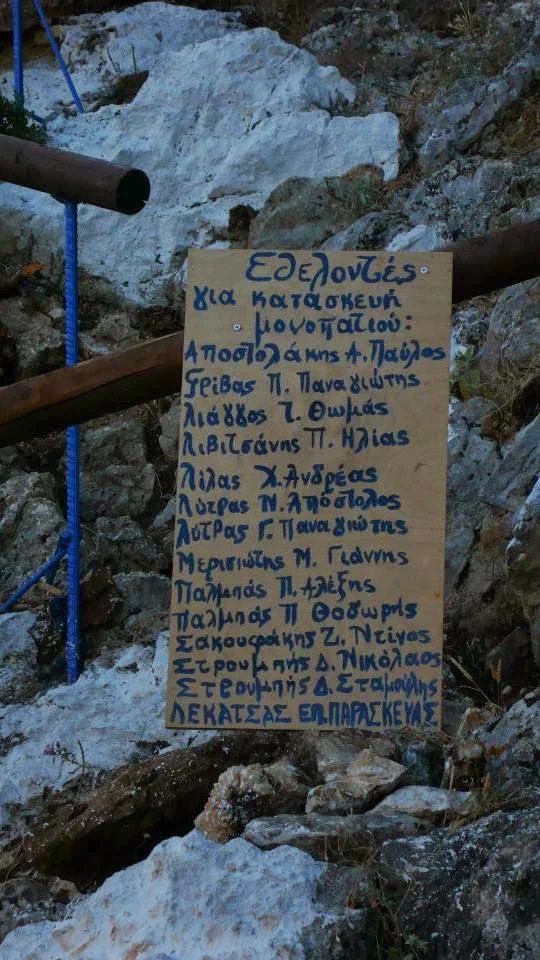 Εθελοντές
για κατασκευή
μονοπατιού:
Αποστολάκης Α. Παύλος
Γρίβας Π. Παναγιώτης
Λιάγγος Τ. Θωμάς
Λιβιτσάνης Π. Ηλίας
Λίλας Χ. Ανδρέας
Λύτρας Ν. Απόστολος
Λύτρας Γ. Παναγιώτης
Μερισιώτης Μ. Γιάννης
Παλμπάς Π. Αλέξης
Παλμπάς Π Θοδωρής
Σακουφάκης Ζ. Ντίνος
Στρουμπής Δ. Νικόλαος
Στρουμπής Δ. Σταμούλης
ΛΕΚΑΤΣΑΣ ΕΠ. ΠΑΡΑΣΚΕΥΑΣ